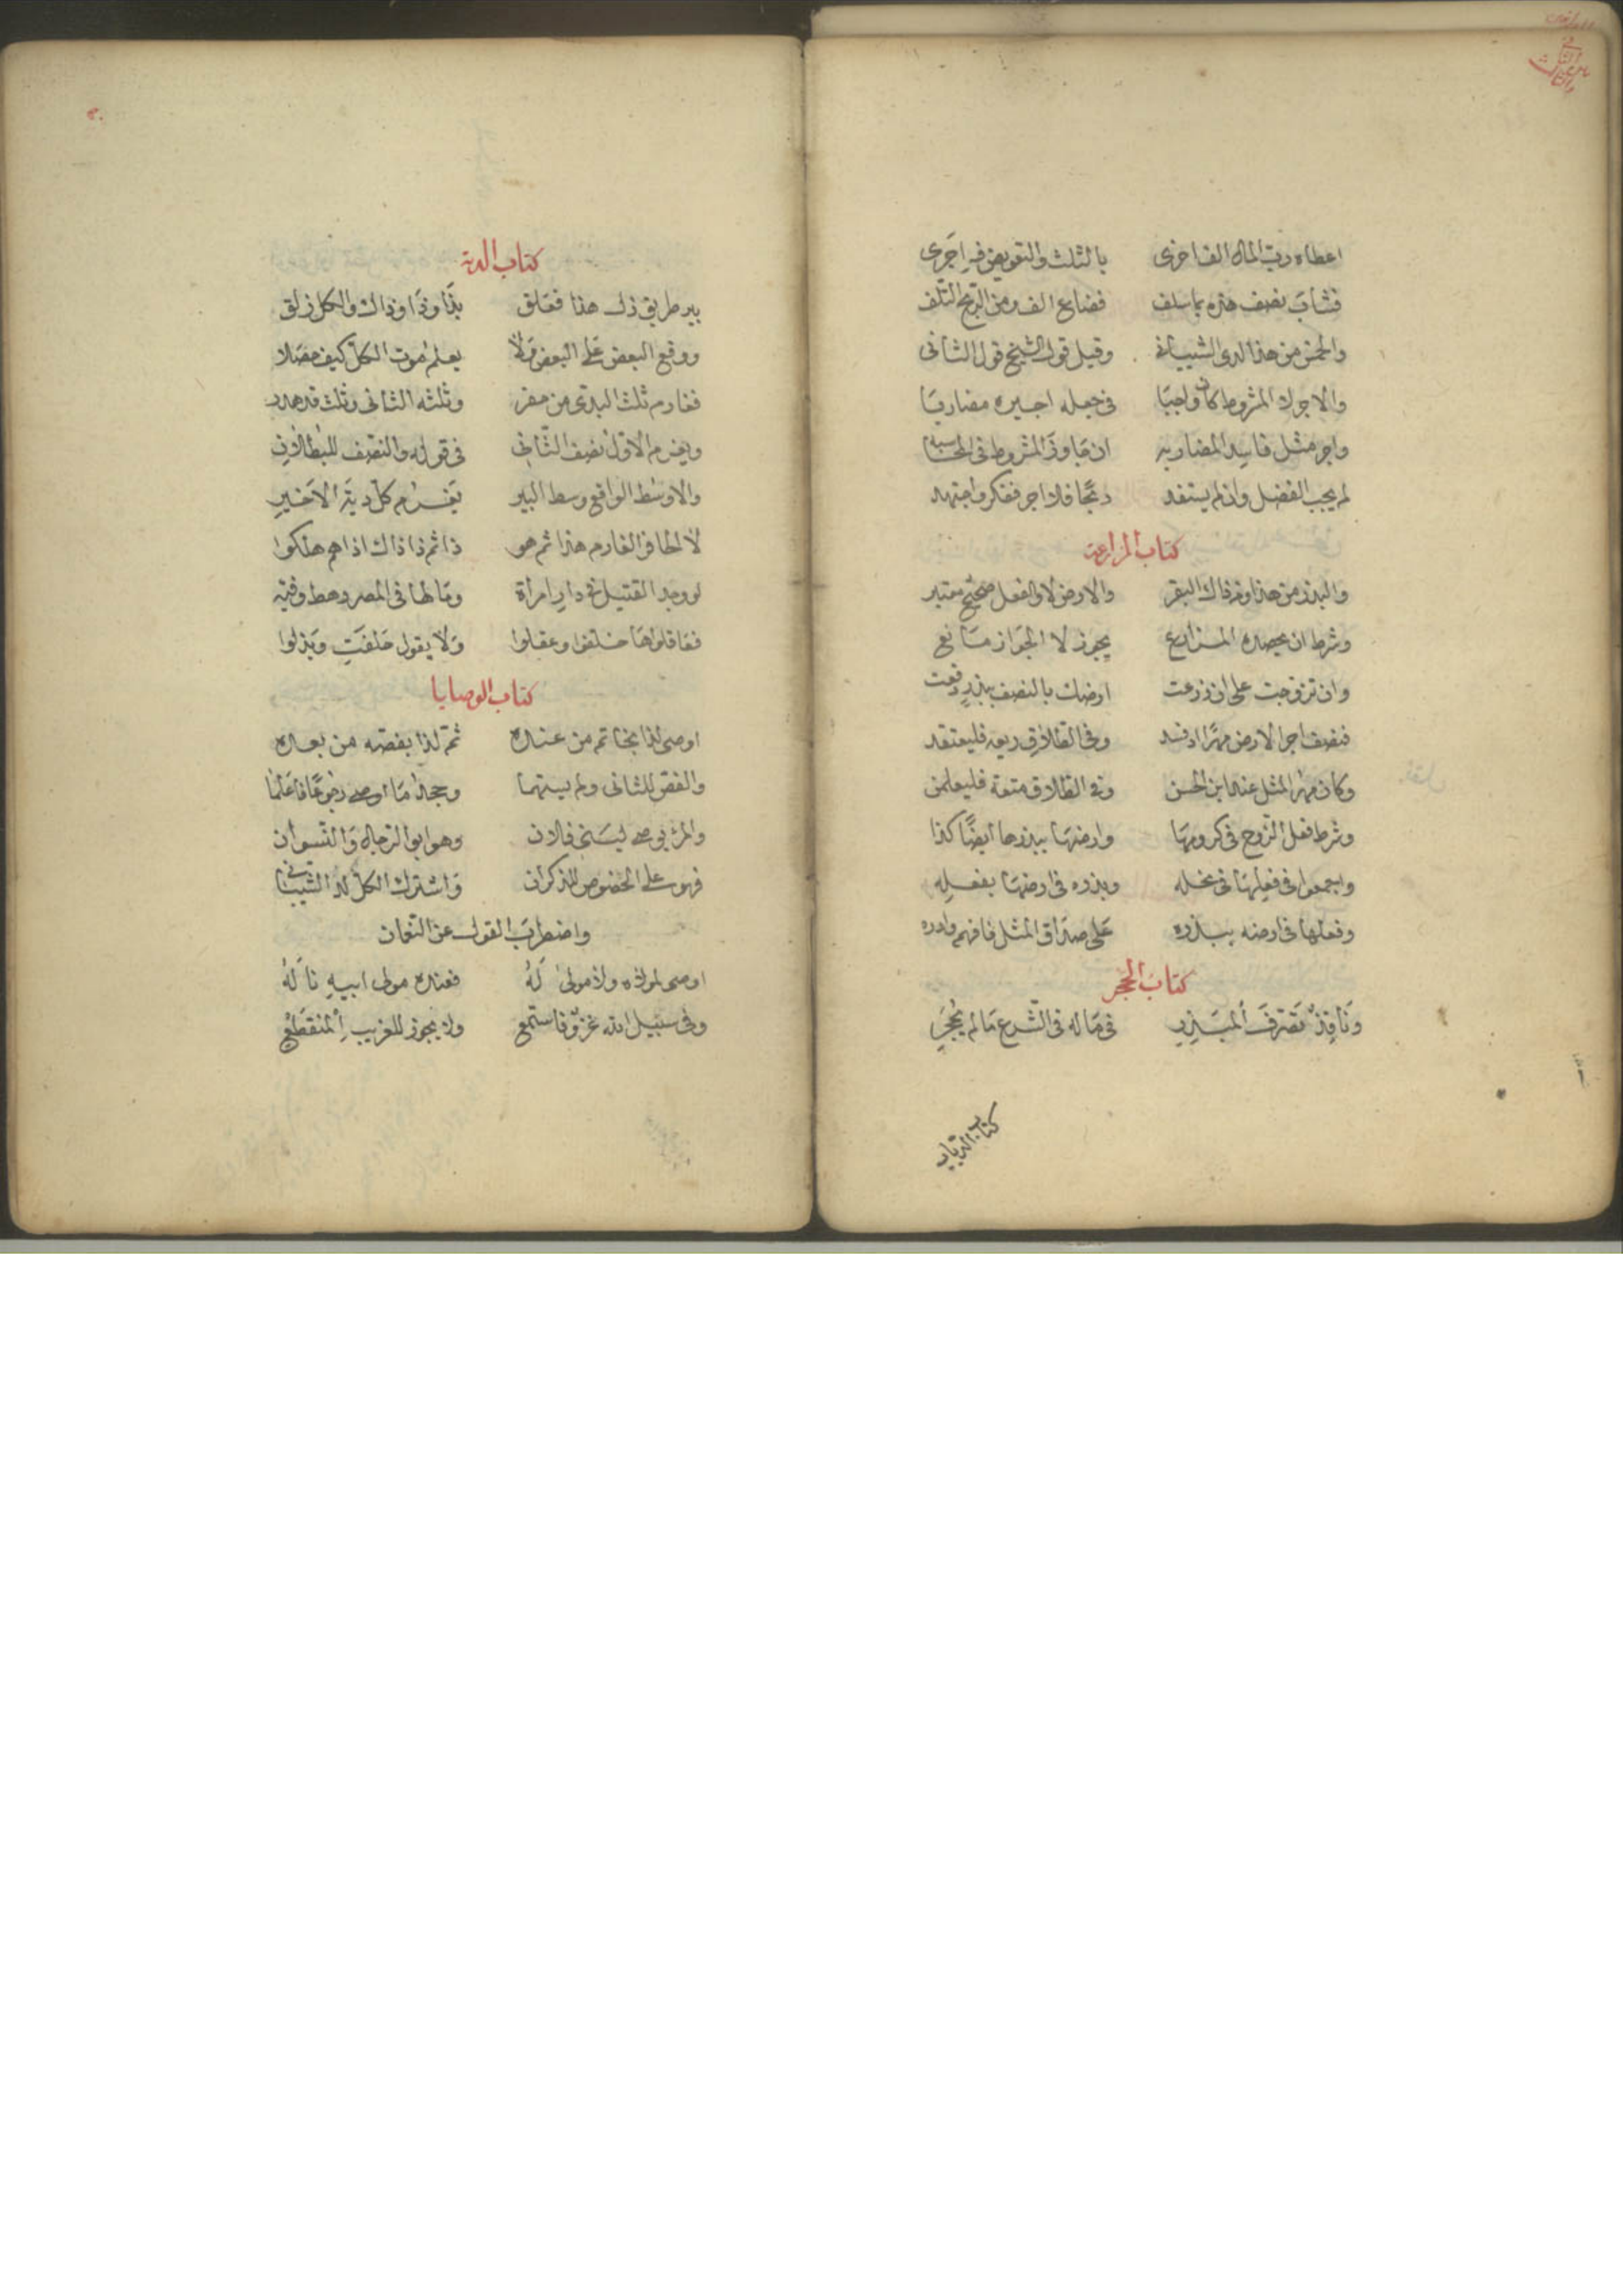 اعطاه رب المال الفا اخرى بالثلث والتفويض فيه اجرى
فشاب نصف هذه بما سلف فضاع الف ومن الربح التلف
والخمس من هذا لدى الشيباني وقيل قول الشيخ قول الثاني
والاجر لا المشروط كان واجبا في جعله اجيره مضاربا
واجر مثل فاسد المضاربه ان جاوز المشروط في المحاسبه
لم يجب الفضل وان لم يستفد ربحا فلا اجر ففكر واجتهد
كتاب المزارعة
والبذر من هذا ومن ذاك البقر والارض لا والفعل صحيح معتبر
وشرط ان يحصده المزارع يجوز لا الجواز مانع
وان تزوجت على ان زرعت ارضك بالنصف ببذر دفعت
فنصف اجر الارض مهرا اد فقد وفي الطلاق ربعه فليعتقد
وكان مهر المثل عند ابن الحسن وفي الطلاق متعة فليعلمن
وشرط فعل الزوج في كرومها وارضها ببذرها ايضا كذا
واجمعوا في فعلها في نخله وبذره في ارضها بفعله
وفعلها في ارضه ببذره على صداق المثل فافهم وادره
كتاب الحجر
ونافذ تصرف المبذر في ماله في الشرع ما لم يحجر
كتاب الديات
كتاب الدية
بير طريق زل هذا فعلق بذا وذا وذاك والكل زلق
ووقع البعض على البعض ولا يعلم موت الكل كيف حصلا
فغارم ثلث البدى من حفر وثلثه الثاني وثلث قد هدر
ويغرم الاول نصف الثاني في قوله والنصف للبطلان
والاوسط الواقع وسط البير يغرم كل دية الاخير
لا الحافر الغارم هذا ثم هو ذا ثم ذا ذاك اذا هم هلكوا
لو وجد القتيل في دار امراة وما لها في المصر رهط وفئه
فعاقلوها حلفوا وعقلوا ولا يقول حلفت وبذلوا
كتاب الوصايا
اوصى لذا بخاتم من عنده ثم لذا بفصه من بعده
والفص للثاني ولم يسهما وجحد ما اوصى رجوعا فاعلما
والمرء يوصي لبني فلان وهو ابو الرجال والنسوان
فهو على الخصوص للذكران واشترك الكل لدى الشيباني
واضطرب القول عن النعمان
اوصى لمولاه ولا مولى له فعنده مولى ابيه ناله
وفي سبيل الله غزو فاستمع ولا يجوز للغريب المنقطع